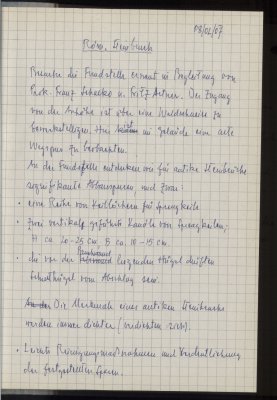 08/02/07
Röm. Steinbruch
Besuche die Fundstelle erneut in Begleitung von
Prok. Franz Schecko u. Fritz Artner. Der Zugang
von der Anhöhe ist über eine Waldschneise zu
bewerkstelligen. Hier ist im Gelände eine alte
Wegspur zu beobachten.
An der Fundstelle entdecken wir für antike Steinbrüche
signifikante Abbauspuren, und zwar:
• eine Reihe von Keillöchern für Sprengkeile
• zwei vertikale geführte Kanäle von Sprengkeilen;
H ca 20-25 cm, B ca. 10-15 cm.
• die vor der liegenden Hügel dürften
Schutthügel vom Abschlag sein.
Die Merkmale eines antiken Steinbruchs
werden immer dichter (verdichten sich).
• Leichte Reinigungsmaßnahmen und Verdeutlichung
der festgestellten Spuren.